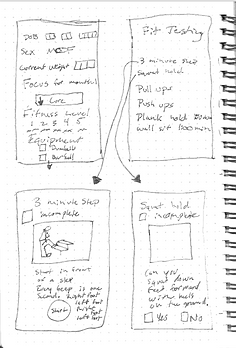 DOB
Sex M F
Current weight
Focus for month(s)
Core
Fitness Level
1 2 3 4 5
Equipment
Dumbells
Barbell
Fit Testing
3 minute step
Squat hold
Pull ups
Push ups
Plank hold
wall sit
3 minute step
incomplete
Start in front
of a step
Every beep is one
second. Right foot
left foot
Right
foot
left foot
Start
Squat hold
incomplete
Can you
squat down
feet forward
w/ your heels
on the ground.
Yes No